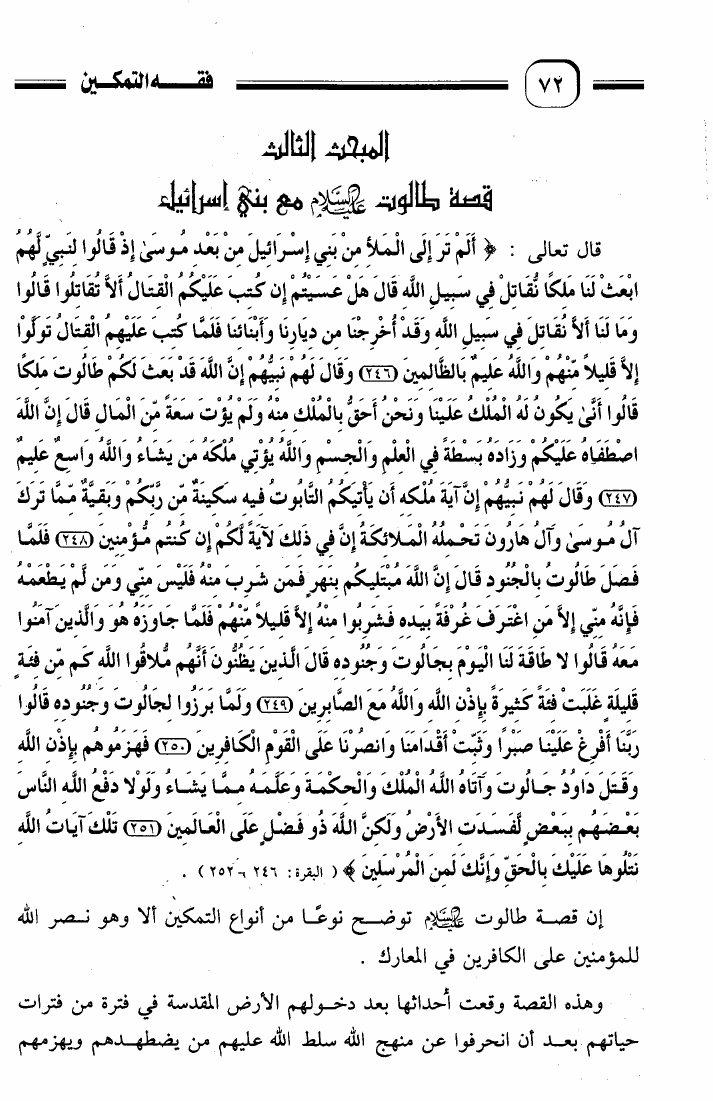 ٧٢ فقـــه التمكـين
المبحث الثالث
قصة طالوت عليه السلام مع بني إسرائيل
قال تعالى : ﴿ أَلَمْ تَرَ إِلَى الْمَلأِ مِنْ بَنِي إِسْرَائِيلَ مِنْ بَعْدِ مُوسَىٰ إِذْ قَالُوا لِنَبِيٍّ لَّهُمُ
ابْعَثْ لَنَا مَلِكًا نُّقَاتِلْ فِي سَبِيلِ اللَّهِ قَالَ هَلْ عَسَيْتُمْ إِن كُتِبَ عَلَيْكُمُ الْقِتَالُ أَلاَّ تُقَاتِلُوا قَالُوا
وَمَا لَنَا أَلاَّ نُقَاتِلَ فِي سَبِيلِ اللَّهِ وَقَدْ أُخْرِجْنَا مِن دِيَارِنَا وَأَبْنَائِنَا فَلَمَّا كُتِبَ عَلَيْهِمُ الْقِتَالُ تَوَلَّوْا
إِلاَّ قَلِيلاً مِّنْهُمْ وَاللَّهُ عَلِيمٌ بِالظَّالِمِينَ (٢٤٦) وَقَالَ لَهُمْ نَبِيُّهُمْ إِنَّ اللَّهَ قَدْ بَعَثَ لَكُمْ طَالُوتَ مَلِكًا
قَالُوا أَنَّىٰ يَكُونُ لَهُ الْمُلْكُ عَلَيْنَا وَنَحْنُ أَحَقُّ بِالْمُلْكِ مِنْهُ وَلَمْ يُؤْتَ سَعَةً مِّنَ الْمَالِ قَالَ إِنَّ اللَّهَ
اصْطَفَاهُ عَلَيْكُمْ وَزَادَهُ بَسْطَةً فِي الْعِلْمِ وَالْجِسْمِ وَاللَّهُ يُؤْتِي مُلْكَهُ مَن يَشَاءُ وَاللَّهُ وَاسِعٌ عَلِيمٌ
(٢٤٧) وَقَالَ لَهُمْ نَبِيُّهُمْ إِنَّ آيَةَ مُلْكِهِ أَن يَأْتِيَكُمُ التَّابُوتُ فِيهِ سَكِينَةٌ مِّن رَّبِّكُمْ وَبَقِيَّةٌ مِّمَّا تَرَكَ
آلُ مُوسَىٰ وَآلُ هَارُونَ تَحْمِلُهُ الْمَلائِكَةُ إِنَّ فِي ذَلِكَ لآيَةً لَّكُمْ إِن كُنتُم مُّؤْمِنِينَ (٢٤٨) فَلَمَّا
فَصَلَ طَالُوتُ بِالْجُنُودِ قَالَ إِنَّ اللَّهَ مُبْتَلِيكُم بِنَهَرٍ فَمَن شَرِبَ مِنْهُ فَلَيْسَ مِنِّي وَمَن لَّمْ يَطْعَمْهُ
فَإِنَّهُ مِنِّي إِلاَّ مَنِ اغْتَرَفَ غُرْفَةً بِيَدِهِ فَشَرِبُوا مِنْهُ إِلاَّ قَلِيلاً مِّنْهُمْ فَلَمَّا جَاوَزَهُ هُوَ وَالَّذِينَ آمَنُوا
مَعَهُ قَالُوا لا طَاقَةَ لَنَا الْيَوْمَ بِجَالُوتَ وَجُنُودِهِ قَالَ الَّذِينَ يَظُنُّونَ أَنَّهُم مُّلاقُوا اللَّهِ كَم مِّن فِئَةٍ
قَلِيلَةٍ غَلَبَتْ فِئَةً كَثِيرَةً بِإِذْنِ اللَّهِ وَاللَّهُ مَعَ الصَّابِرِينَ (٢٤٩) وَلَمَّا بَرَزُوا لِجَالُوتَ وَجُنُودِهِ قَالُوا
رَبَّنَا أَفْرِغْ عَلَيْنَا صَبْرًا وَثَبِّتْ أَقْدَامَنَا وَانصُرْنَا عَلَى الْقَوْمِ الْكَافِرِينَ (٢٥٠) فَهَزَمُوهُم بِإِذْنِ اللَّهِ
وَقَتَلَ دَاوُدُ جَالُوتَ وَآتَاهُ اللَّهُ الْمُلْكَ وَالْحِكْمَةَ وَعَلَّمَهُ مِمَّا يَشَاءُ وَلَوْلا دَفْعُ اللَّهِ النَّاسَ
بَعْضَهُم بِبَعْضٍ لَّفَسَدَتِ الأَرْضُ وَلَكِنَّ اللَّهَ ذُو فَضْلٍ عَلَى الْعَالَمِينَ (٢٥١) تِلْكَ آيَاتُ اللَّهِ
نَتْلُوهَا عَلَيْكَ بِالْحَقِّ وَإِنَّكَ لَمِنَ الْمُرْسَلِينَ ﴾ ( البقرة : ٢٤٦ - ٢٥٢ ) .
إن قصـة طالوت عليه السلام توضـح نوعًـا من أنواع التمكين ألا وهو نـصر الله
للمؤمنين على الكافرين في المعارك .
وهذه القصة وقعت أحداثها بعد دخـولهم الأرض المقدسة في فترة من فترات
حياتهم بعـد أن انحرفوا عن منهج الله سلط الله عليهم من يضطهـدهم ويهزمهم